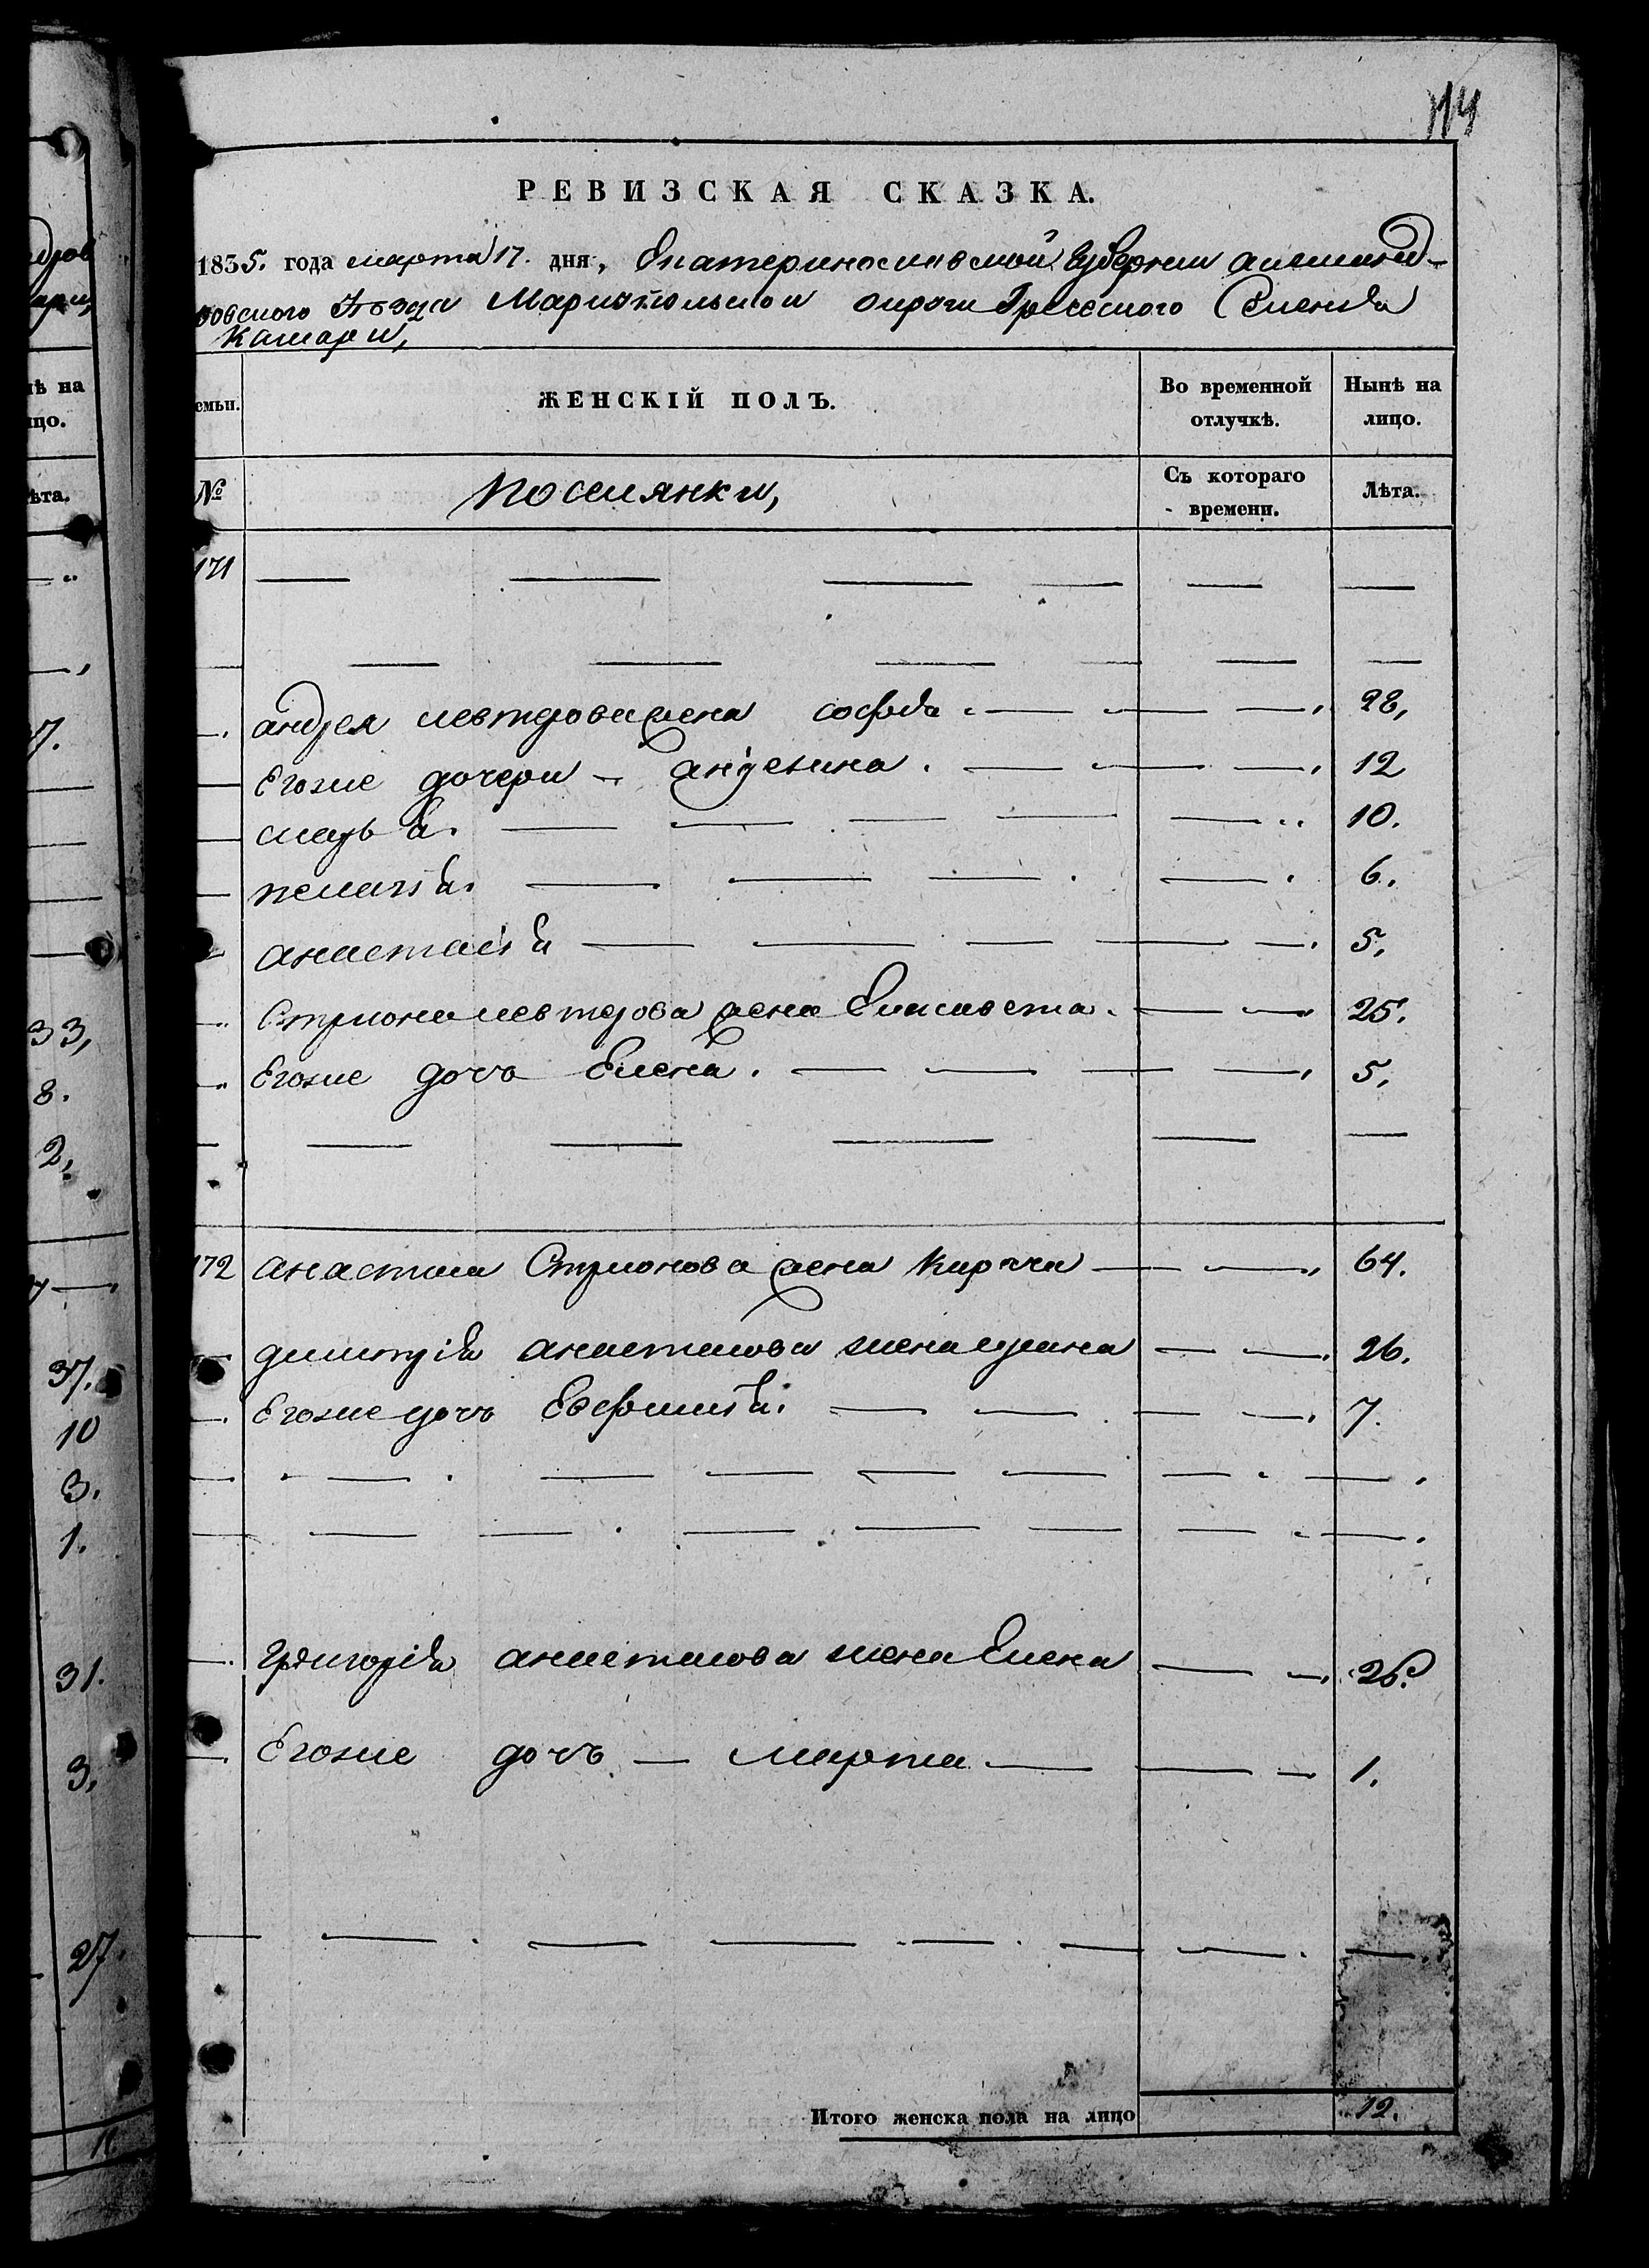 114
РЕВИЗСКАЯ СКАЗКА.
1835. года марта 17. дня, Екатеринославской Губернии александ-
ровского Уѣзда Мариупольской округи Греческого Селенія
Камари,
емьи.
ЖЕНСКІЙ ПОЛЪ.
Во временной отлучкѣ.
Нынѣ на лицо.
№
поселянки,
Съ котораго времени.
Лѣта.
171
андрея левтерова жена софія 28,
Егоже дочери – ангелина. 12
марія. 10.
пелагія. 6.
анастасія 5,
Стріона левтерова жена Елисавета. 25.
Егоже дочь Елена. 5,
172 анастаса Стріонова жена Кирача 64.
димитрія анастасова жена ирина 26.
Егоже дочь Евфимія. 7.
Григорія анастасова жена Елена 26.
Егоже дочь – марта 1.
Итого женска пола на лицо 12.
дров
ари,
ѣ на
цо.
ѣта.
7.
33,
8.
2,
37.
10
3.
1.
31.
3,
27.